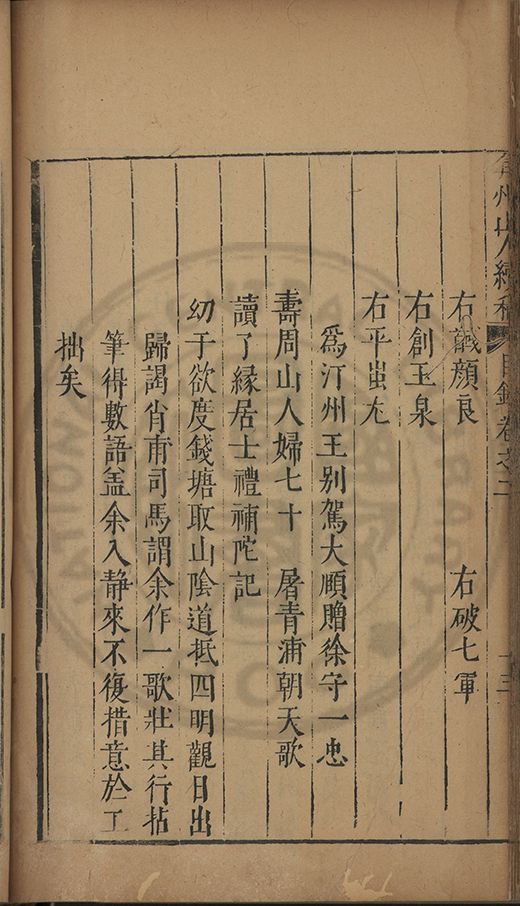 弇州山人續稿 目錄卷之二 十三
右馘顏良 右破七軍
右創玉泉
右平蚩尤
為汀州王别駕大順贈徐守一忠
壽周山人婦七十 屠青浦朝天歌
讀了縁居士禮補陀記
幼于欲度錢塘取山隂道抵四明觀日出
歸謁肖甫司馬謂余作一歌壯其行拈
筆得數語盖余入静來不復措意於工
拙矣